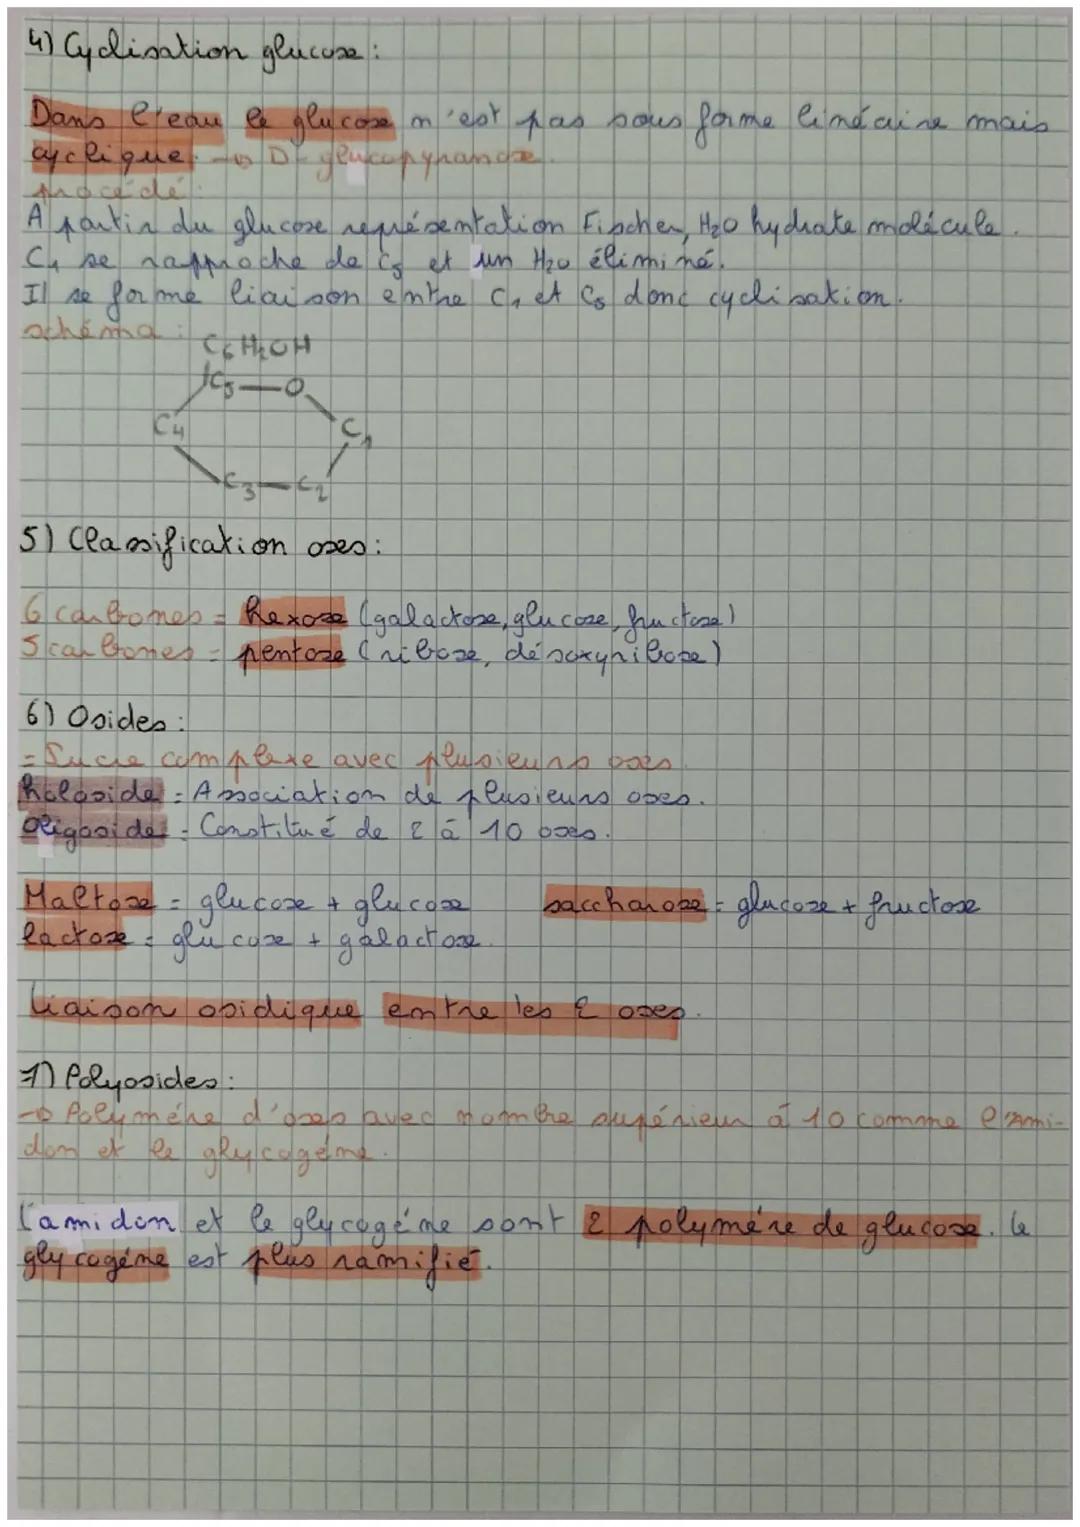 4) Cyclisation glucose :
Dans l'eau le glucose n'est pas sous forme linéaire mais
cyclique. → D-glucopyranose.
procédé :
A partir du glucose représentation Fischer, H2O hydrate molécule.
C1 se rapproche de C5 et un H2O éliminé.
Il se forme liaison entre C1 et C5 donc cyclisation.
schéma :
C6H2OH
C5 — O
C4 C1
C3 — C2
5) Classification oses :
6 carbones = hexose (galactose, glucose, fructose)
5 carbones = pentose (ribose, désoxyribose)
6) Osides :
= Sucre complexe avec plusieurs oses.
holoside = Association de plusieurs oses.
oligoside = Constitué de 2 à 10 oses.
Maltose = glucose + glucose saccharose = glucose + fructose
lactose = glucose + galactose.
liaison osidique entre les 2 oses.
7) Polyosides :
→ Polymère d'oses avec nombre supérieur à 10 comme l'ami-
don et le glycogène.
L'amidon et le glycogène sont 2 polymère de glucose. Le
glycogène est plus ramifié.